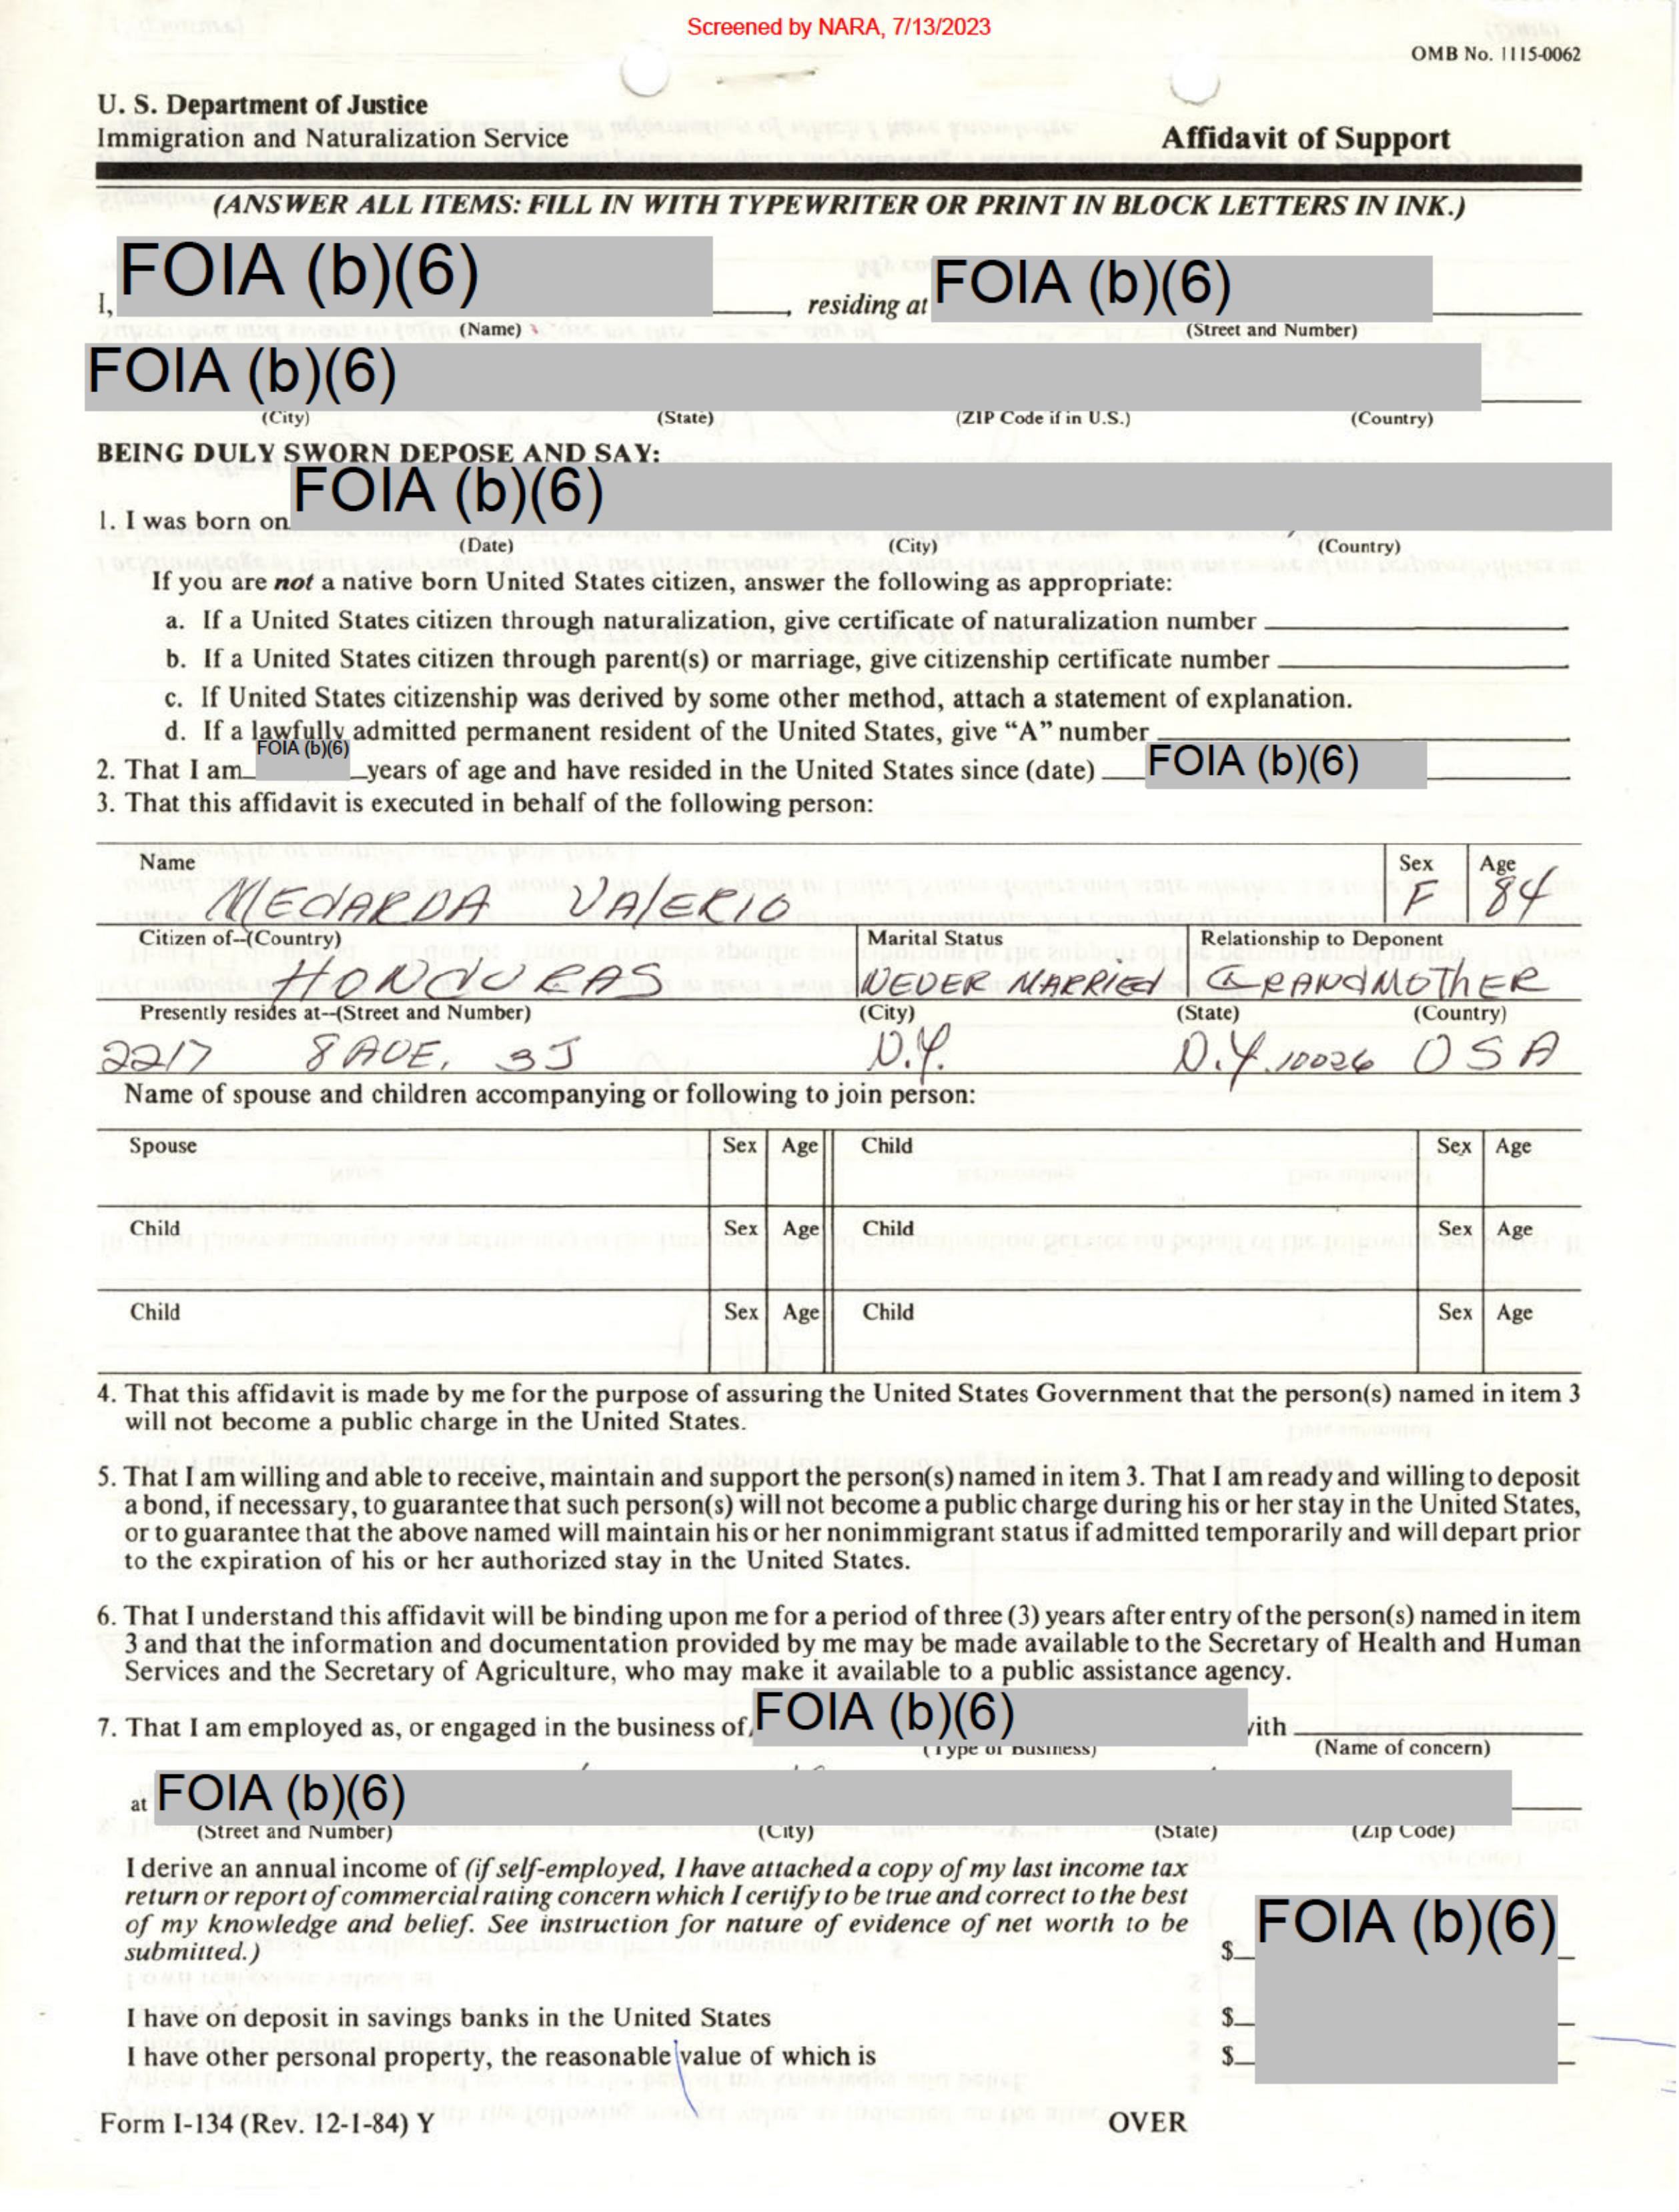 Screened by NARA, 7/13/2023
OMB No. 1115-0062
U. S. Department of Justice
Immigration and Naturalization Service
Affidavit of Support
(ANSWER ALL ITEMS: FILL IN WITH TYPEWRITER OR PRINT IN BLOCK LETTERS IN INK.)
I, FOIA (b)(6), residing at FOIA (b)(6)
(Name) (Street and Number)
FOIA (b)(6)
(City) (State) (ZIP Code if in U.S.) (Country)
BEING DULY SWORN DEPOSE AND SAY:
1. I was born on FOIA (b)(6)
(Date) (City) (Country)
If you are not a native born United States citizen, answer the following as appropriate:
a. If a United States citizen through naturalization, give certificate of naturalization number
b. If a United States citizen through parent(s) or marriage, give citizenship certificate number
c. If United States citizenship was derived by some other method, attach a statement of explanation.
d. If a lawfully admitted permanent resident of the United States, give "A" number
2. That I am FOIA (b)(6) years of age and have resided in the United States since (date) FOIA (b)(6)
3. That this affidavit is executed in behalf of the following person:
Name Sex Age
MEDARDA VALERIO F 84
Citizen of--(Country) Marital Status Relationship to Deponent
HONDURAS NEVER MARRIED GRANDMOTHER
Presently resides at--(Street and Number) (City) (State) (Country)
2217 8 AVE. 3J N.Y. N.Y. 10026 USA
Name of spouse and children accompanying or following to join person:
Spouse Sex Age Child Sex Age
Child Sex Age Child Sex Age
Child Sex Age Child Sex Age
4. That this affidavit is made by me for the purpose of assuring the United States Government that the person(s) named in item 3
will not become a public charge in the United States.
5. That I am willing and able to receive, maintain and support the person(s) named in item 3. That I am ready and willing to deposit
a bond, if necessary, to guarantee that such person(s) will not become a public charge during his or her stay in the United States,
or to guarantee that the above named will maintain his or her nonimmigrant status if admitted temporarily and will depart prior
to the expiration of his or her authorized stay in the United States.
6. That I understand this affidavit will be binding upon me for a period of three (3) years after entry of the person(s) named in item
3 and that the information and documentation provided by me may be made available to the Secretary of Health and Human
Services and the Secretary of Agriculture, who may make it available to a public assistance agency.
7. That I am employed as, or engaged in the business of FOIA (b)(6) with
(Type of Business) (Name of concern)
at FOIA (b)(6)
(Street and Number) (City) (State) (Zip Code)
I derive an annual income of (if self-employed, I have attached a copy of my last income tax
return or report of commercial rating concern which I certify to be true and correct to the best
of my knowledge and belief. See instruction for nature of evidence of net worth to be
submitted.) $ FOIA (b)(6)
I have on deposit in savings banks in the United States $
I have other personal property, the reasonable value of which is $
Form I-134 (Rev. 12-1-84) Y OVER